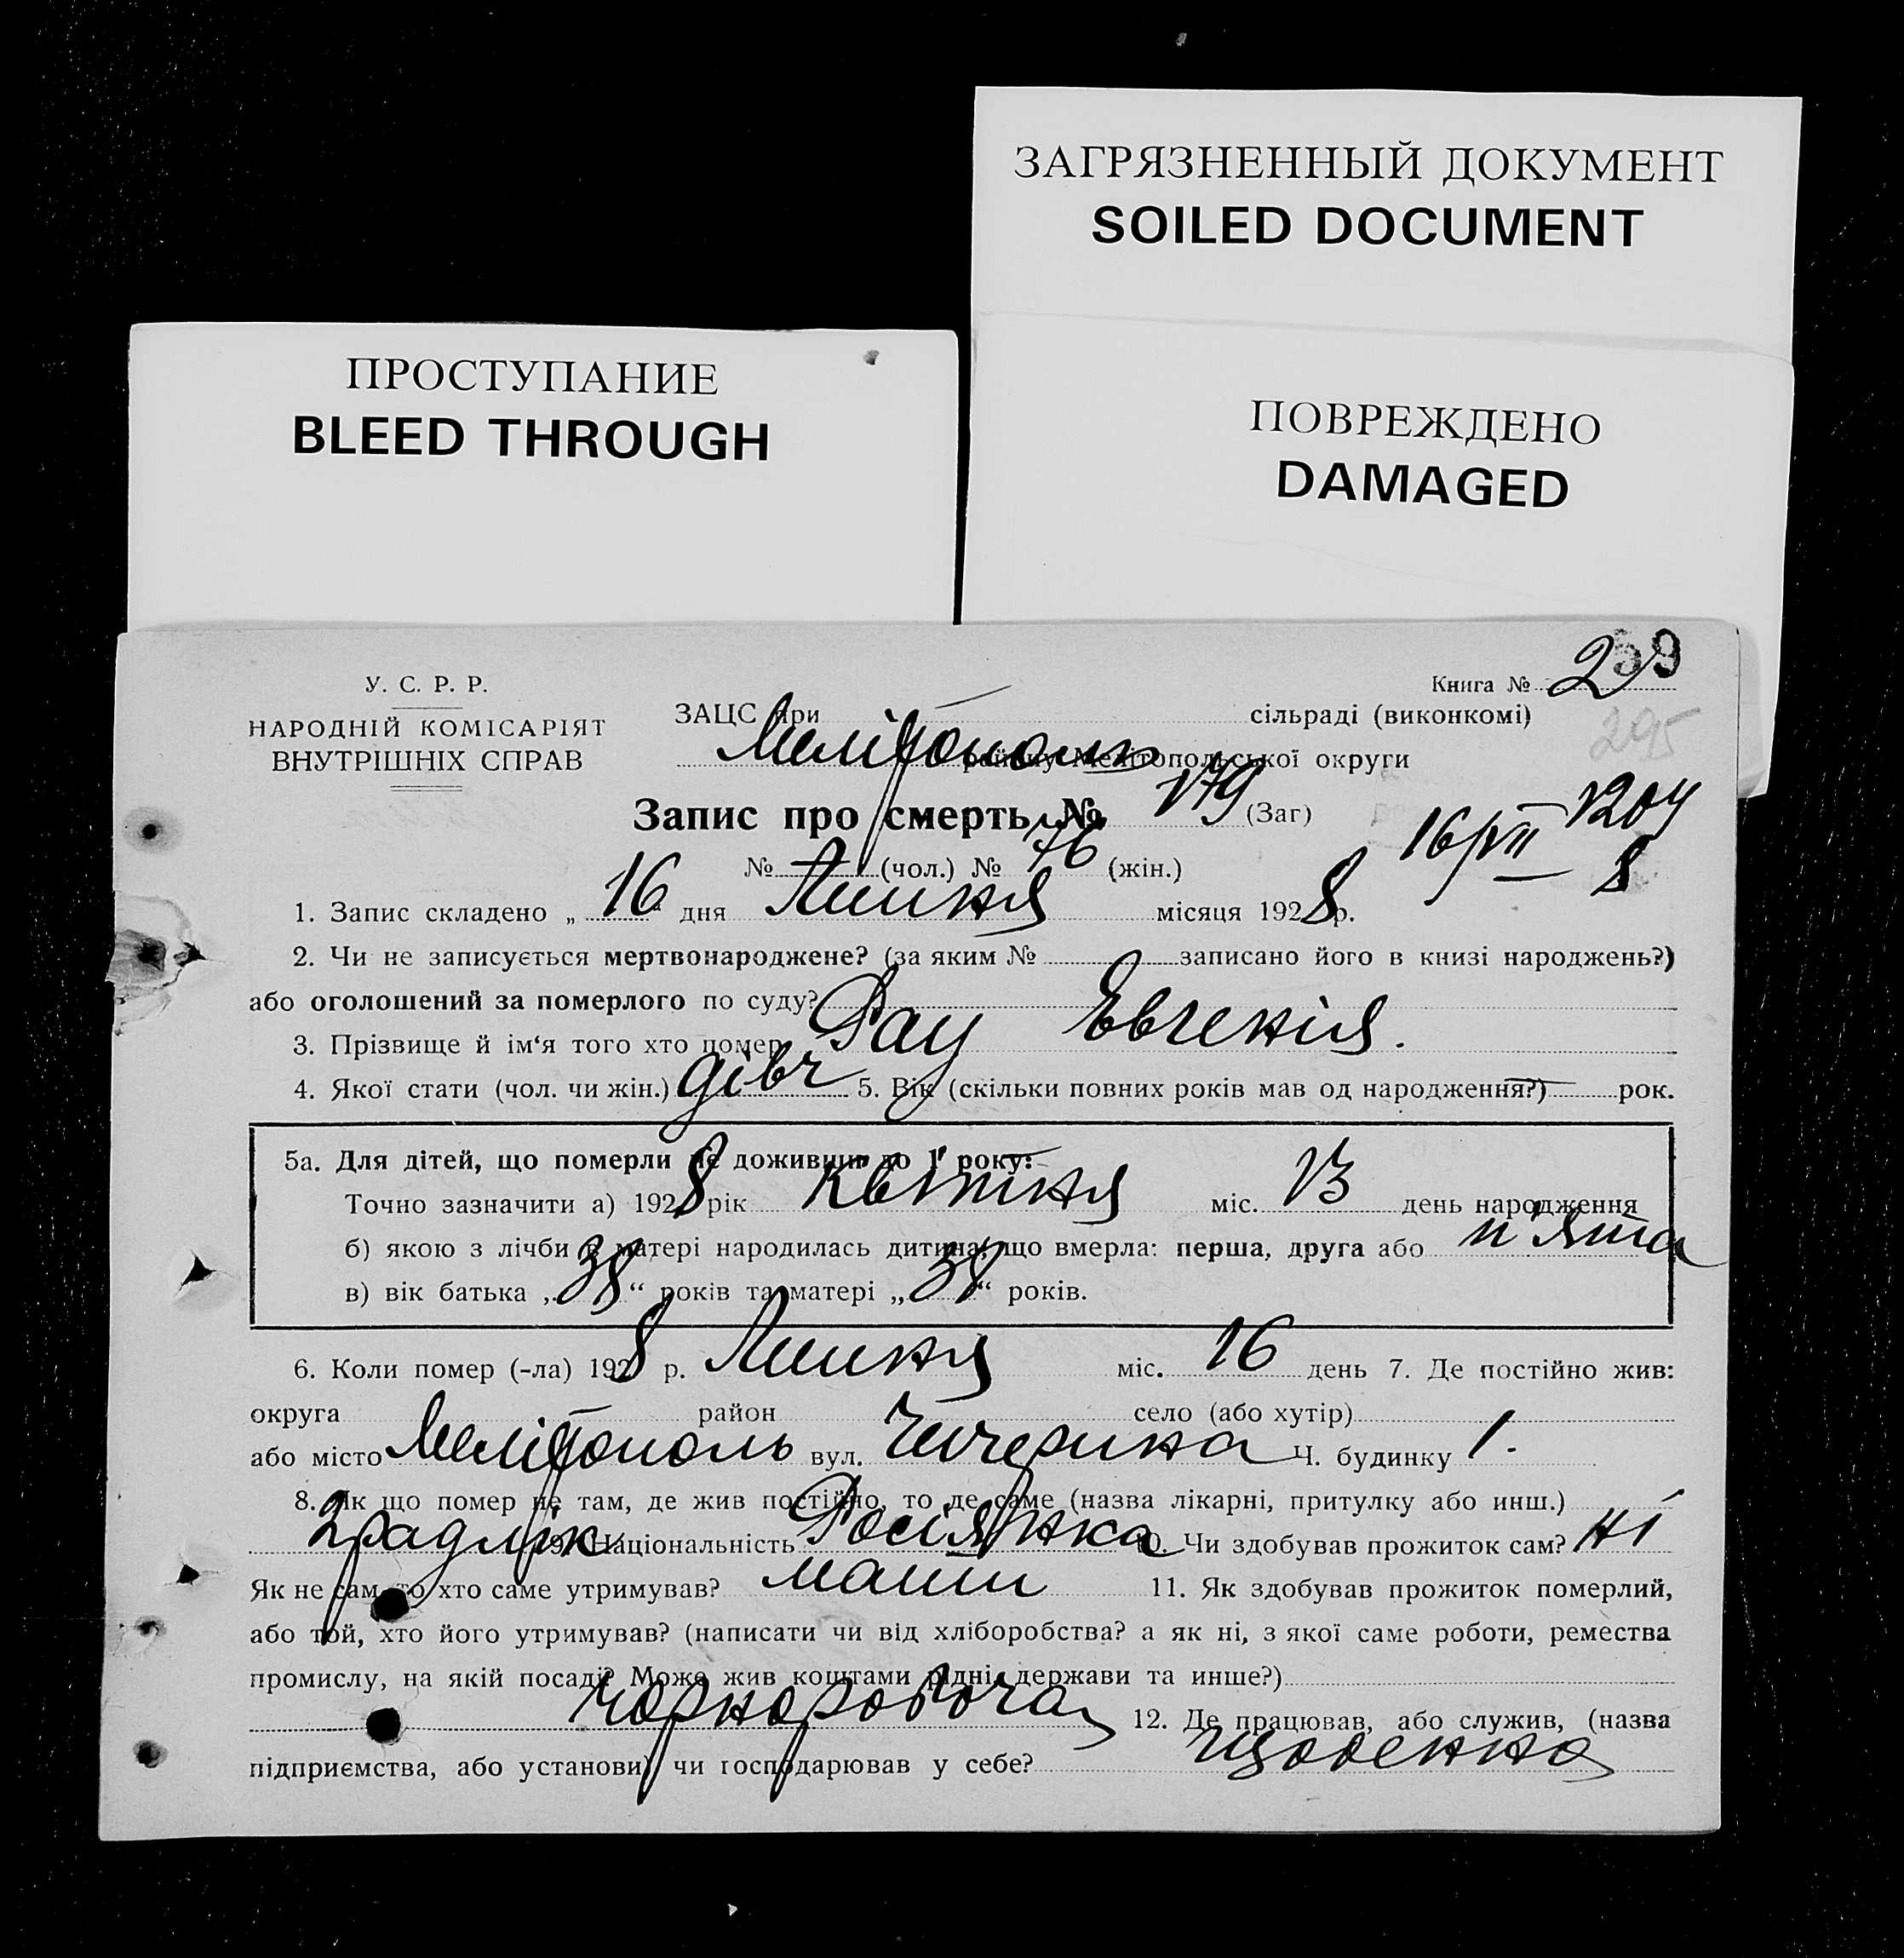 ЗАГРЯЗНЕННЫЙ ДОКУМЕНТ
SOILED DOCUMENT
ПРОСТУПАНИЕ
BLEED THROUGH
ПОВРЕЖДЕНО
DAMAGED
У. С. Р. Р.
НАРОДНІЙ КОМІСАРІЯТ
ВНУТРІШНІХ СПРАВ
Книга № 2
295
ЗАЦС при сільраді (виконкомі)
Мелітополь району Мелітопольської округи
Запис про смерть № 179 (Заг)
№ — (чол.) № 76 (жін.)
16/VII 1204
8
1. Запис складено „ 16 “ дня Липня місяця 1928 р.
2. Чи не записується мертвонароджене? (за яким № записано його в книзі народжень?)
або оголошений за померлого по суду?
3. Прізвище й ім‘я того хто помер Рау Евгенія.
4. Якої стати (чол. чи жін.) дівч 5. Вік (скільки повних років мав од народження?) — рок.
5а. Для дітей, що померли не доживши до 1 року:
Точно зазначити а) 1928 рік Квітня міс. 13 день народження
б) якою з лічби в матері народилась дитина, що вмерла: перша, друга або п'ята
в) вік батька „ 38 “ років та матері „ “ років.
6. Коли помер (-ла) 1928 р. Липня міс. 16 день 7. Де постійно жив:
округа район село (або хутір)
або місто Меліtополь вул. Чичерина Ч. будинку 1.
8. Як що помер не там, де жив постійно, то де саме (назва лікарні, притулку або инш.)
9. Національність Росіянка 10. Чи здобував прожиток сам? Ні
Як не сам, то хто саме утримував? мати 11. Як здобував прожиток померлий,
або той, хто його утримував? (написати чи від хліборобства? а як ні, з якої саме роботи, ремества
промислу, на якій посаді? Може жив коштами рідні, держави та инше?)
чорнороботча 12. Де працював, або служив, (назва
підприємства, або установи) чи господарював у себе? щоденна